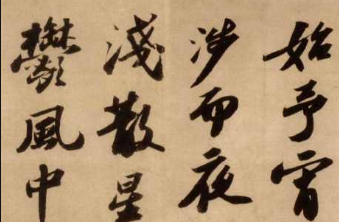 始予宵
涉而夜
淺散星
鬱風中